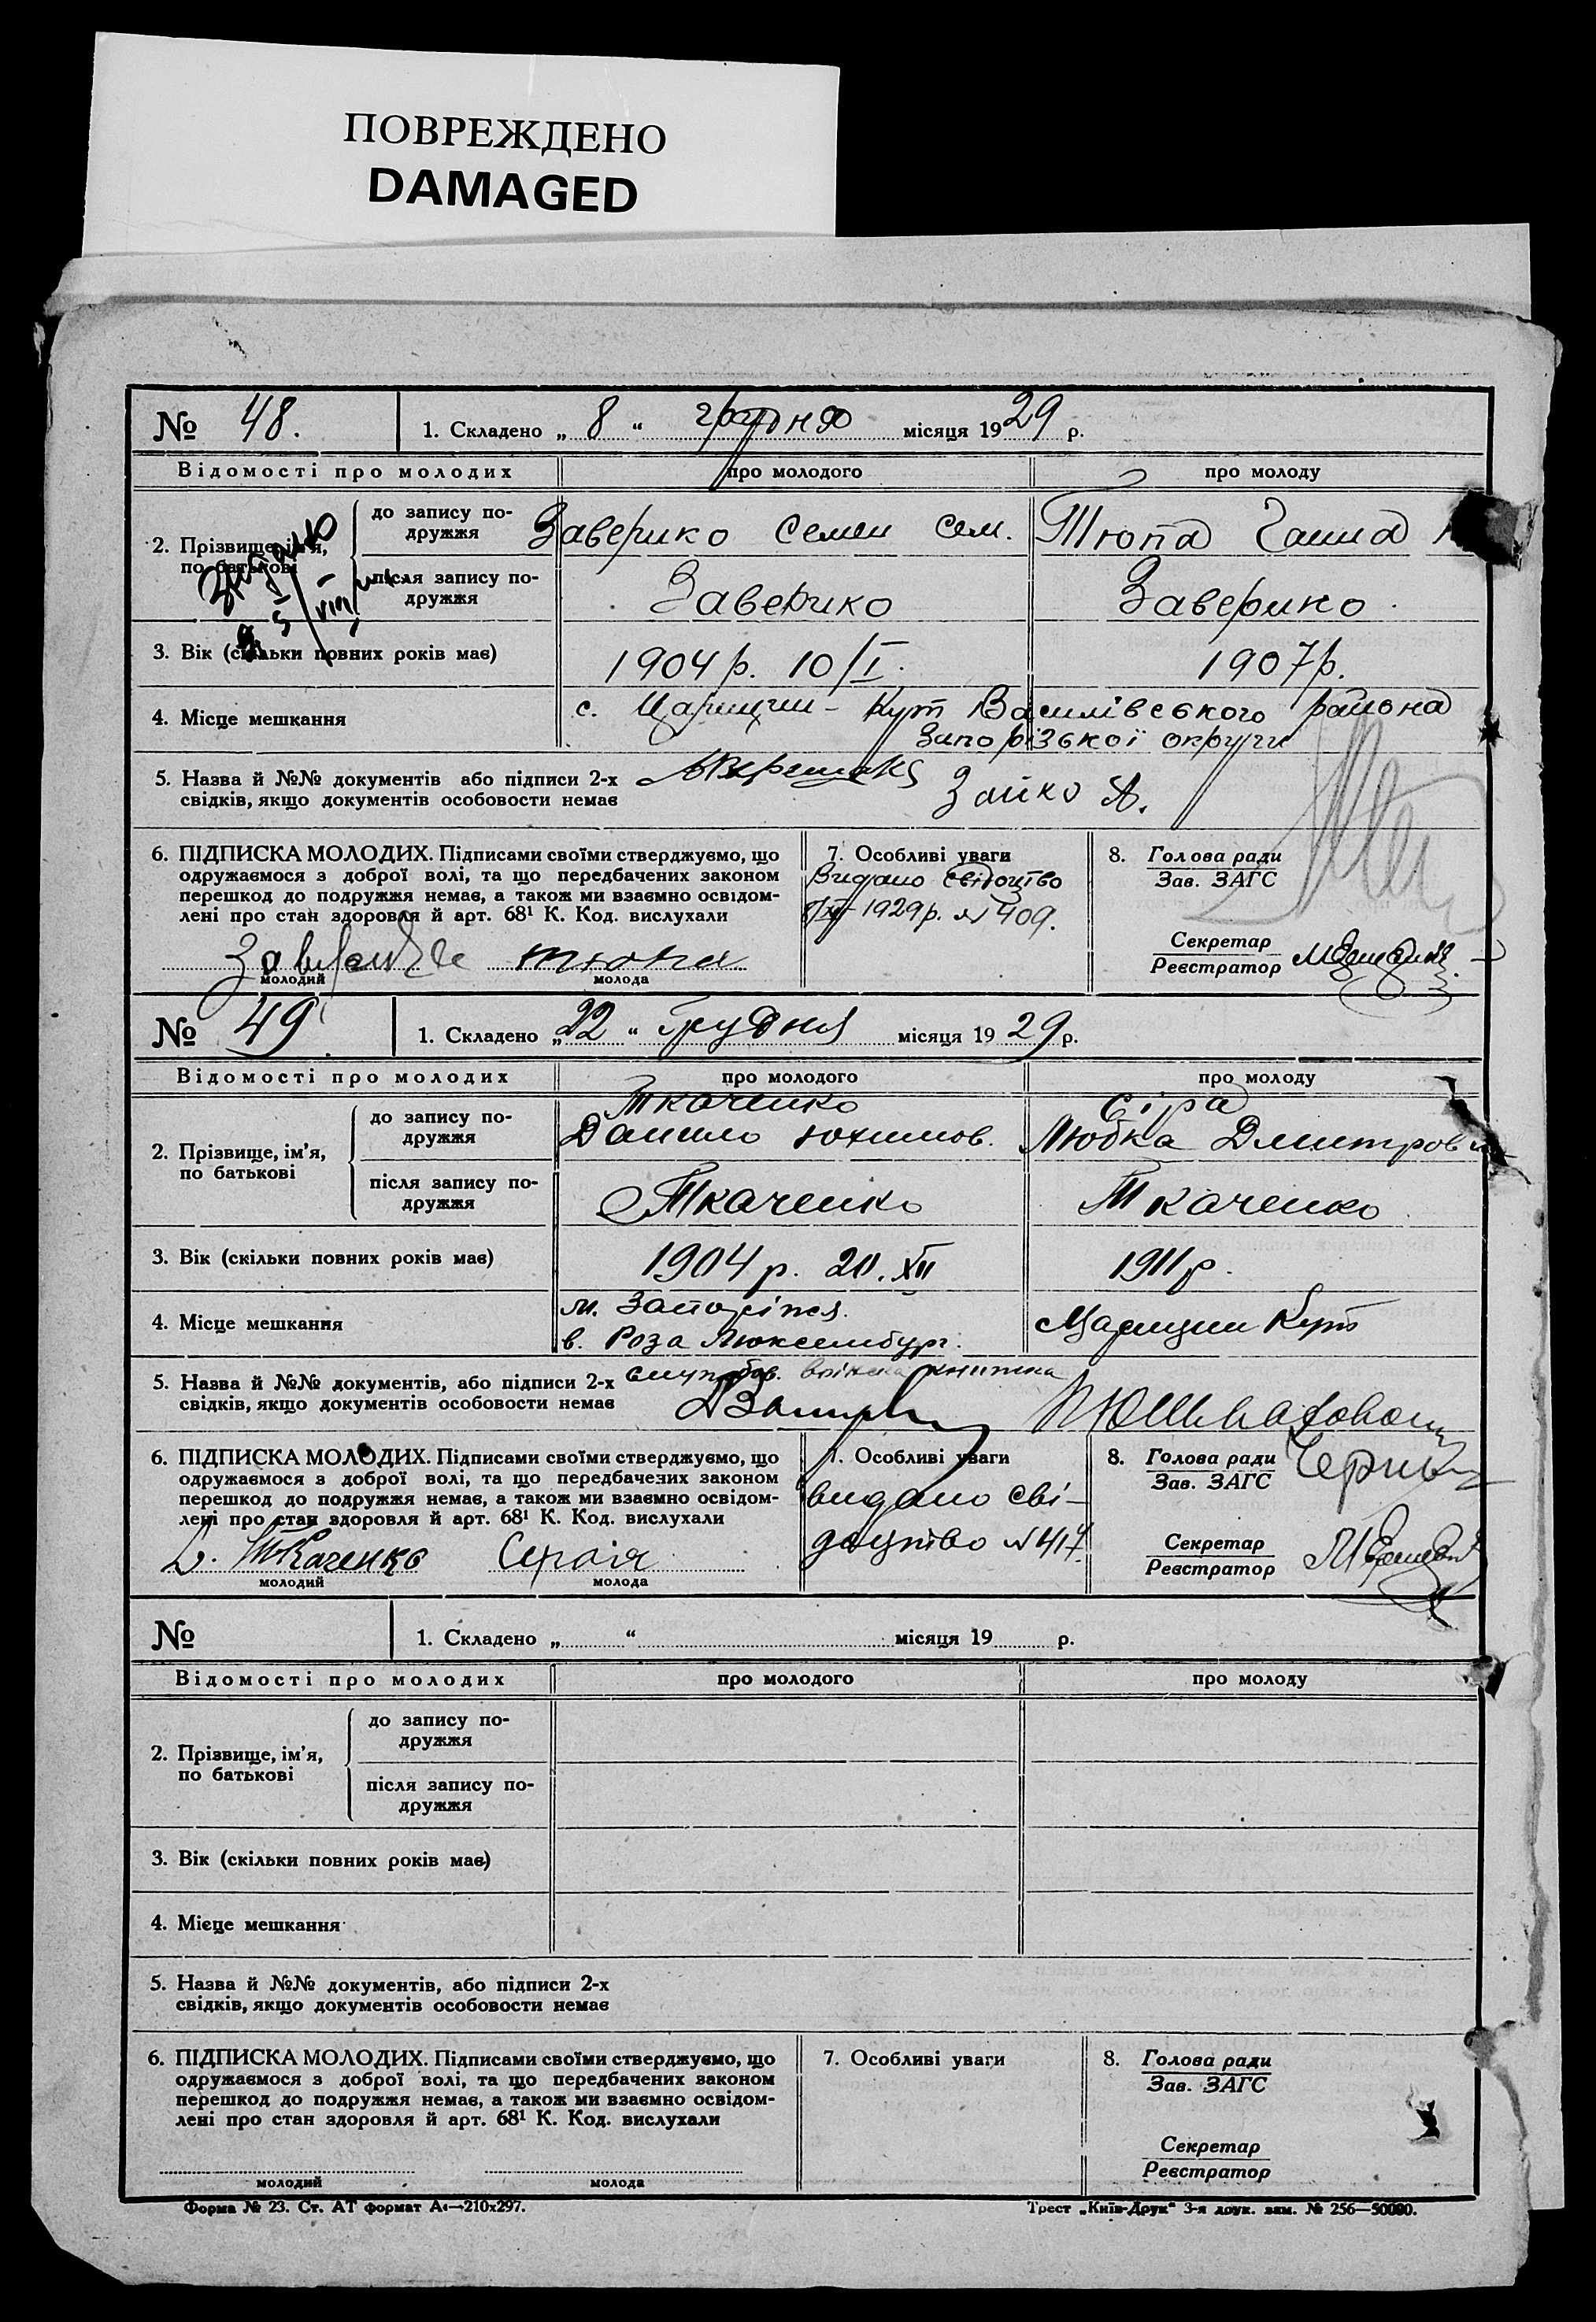 ПОВРЕЖДЕНО
DAMAGED
№ 48. 1. Складено „ 8 “ грудня місяця 1929 р.
Відомості про молодих про молодого про молоду
2. Прізвище, ім'я, по батькові
до запису подружжя Заверико Семен Сем. Тюпа Ганна
після запису подружжя Заверико Заверико
3. Вік (скільки повних років має) 1904 р. 10/I. 1907 р.
4. Місце мешкання с. Царицин-Кут Василівського района
Запорізької округи
5. Назва й №№ документів або підписи 2-х
свідків, якщо документів особовости немає Зайко А.
6. ПІДПИСКА МОЛОДИХ. Підписами своїми стверджуємо, що
одружаємося з доброї волі, та що передбачених законом
перешкод до подружжя немає, а також ми взаємно освідом-
лені про стан здоровля й арт. 68¹ К. Код. вислухали
тюпа
молодий молода
7. Особливі уваги
Видано свідоцтво
1929 р. № 409.
8. Голова ради
Зав. ЗАГС
Секретар
Реєстратор
№ 49. 1. Складено „ 22 “ Грудня місяця 1929 р.
Відомості про молодих про молодого про молоду
2. Прізвище, ім'я, по батькові
до запису подружжя Ткаченко Сіра
Данило Юхимов. Любка Дмитровна
після запису подружжя Ткаченко Ткаченко
3. Вік (скільки повних років має) 1904 р. 20. XII 1911 р.
4. Місце мешкання м. Запоріжя. Царицин Кут
в. Роза Люксембург.
5. Назва й №№ документів, або підписи 2-х
свідків, якщо документів особовости немає книжка
6. ПІДПИСКА МОЛОДИХ. Підписами своїми стверджуємо, що
одружаємося з доброї волі, та що передбачених законом
перешкод до подружжя немає, а також ми взаємно освідом-
лені про стан здоровля й арт. 68¹ К. Код. вислухали
Д. Ткаченко
молодий молода
7. Особливі уваги
видано сві-
доцтво № 414.
8. Голова ради
Зав. ЗАГС
Секретар
Реєстратор
№ 1. Складено „ “ місяця 19 р.
Відомості про молодих про молодого про молоду
2. Прізвище, ім'я, по батькові
до запису подружжя
після запису подружжя
3. Вік (скільки повних років має)
4. Місце мешкання
5. Назва й №№ документів, або підписи 2-х
свідків, якщо документів особовости немає
6. ПІДПИСКА МОЛОДИХ. Підписами своїми стверджуємо, що
одружаємося з доброї волі, та що передбачених законом
перешкод до подружжя немає, а також ми взаємно освідом-
лені про стан здоровля й арт. 68¹ К. Код. вислухали
молодий молода
7. Особливі уваги
8. Голова ради
Зав. ЗАГС
Секретар
Реєстратор
Форма № 23. Ст. АТ формат А4—210х297. Трест „Київ-Друк“ 3-я друк. зам. № 256—50000.